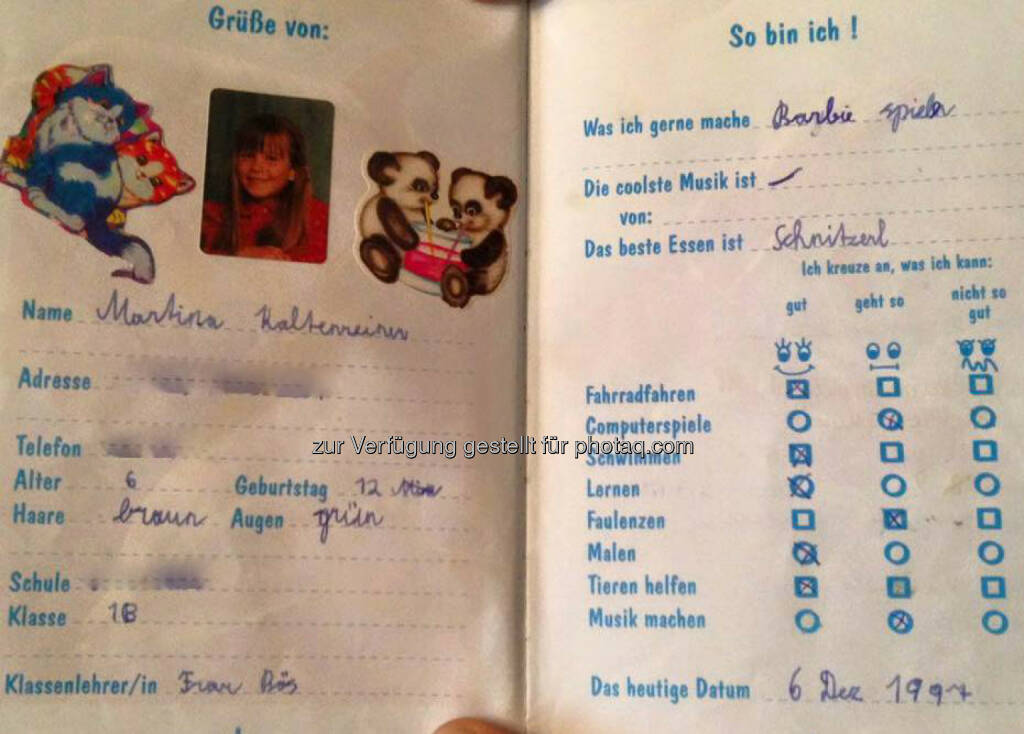 Grüße von:
Name Martina Kaltenreiner
Adresse
Telefon
Alter 6 Geburtstag 12 März
Haare braun Augen grün
Schule
Klasse 1B
Klassenlehrer/in Frau Bös
So bin ich !
Was ich gerne mache Barbie spielen
Die coolste Musik ist –
von:
Das beste Essen ist Schnitzerl
Ich kreuze an, was ich kann:
gut geht so nicht so gut
Fahrradfahren
Computerspiele
Schwimmen
Lernen
Faulenzen
Malen
Tieren helfen
Musik machen
Das heutige Datum 6 Dez 1997
zur Verfügung gestellt für photaq.com